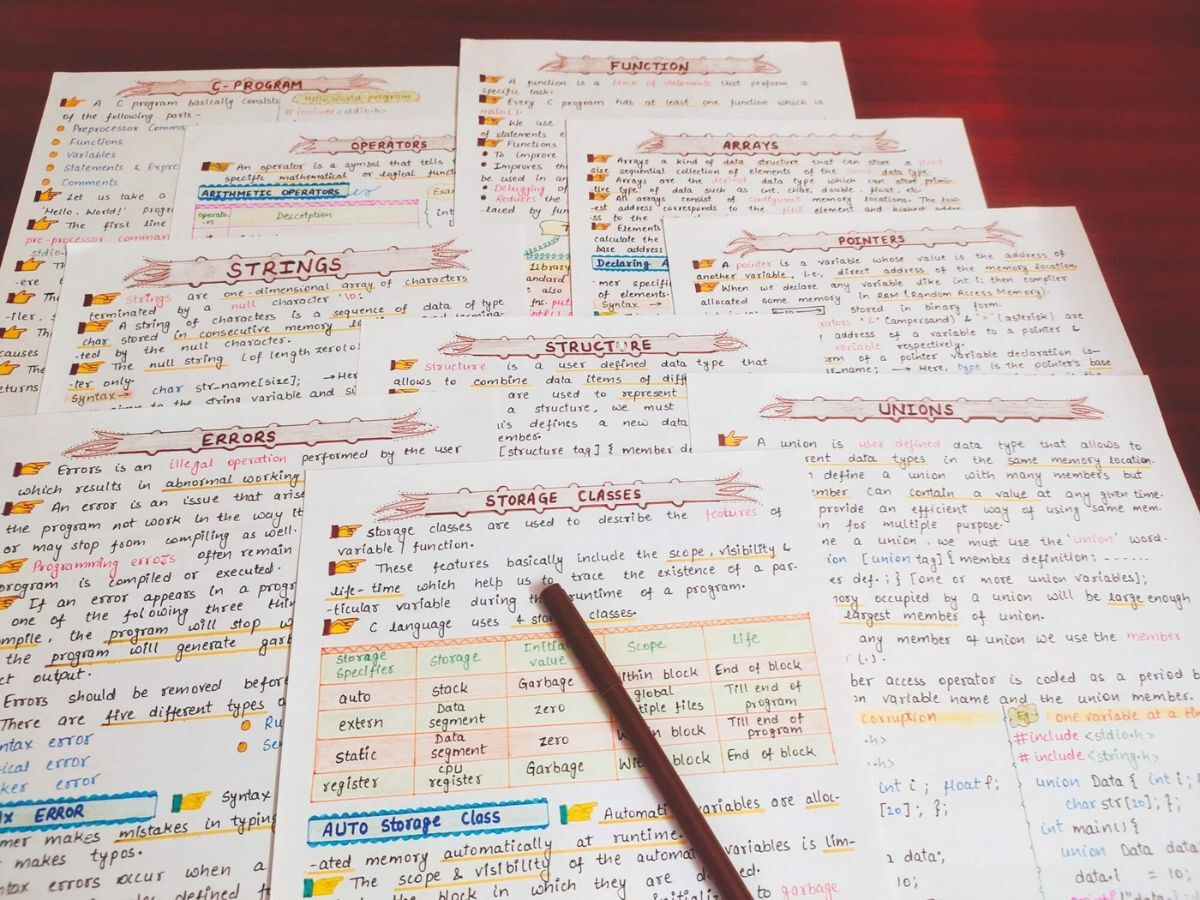 C-PROGRAM
A C program basically consists
of the following parts-
Preprocessor Comma
Functions
Variables
Statements & Expre
Comments
Let us take a
'Hello, World!' progr
The first line
pre-processor comman
stdio.
Hello World program
#include<stdio.h>
FUNCTION
A function is a block of statements that perform a
specific task.
Every C program has at least one function which is
main().
We use
of statements e
Functions
To improve
Improves th
be used in an
Debugging of
Reduces the
-laced by fun
OPERATORS
An operator is a symbol that tells
specific mathematical or logical funct
ARITHMETIC OPERATORS
Description
ARRAYS
Arrays a kind of data structure that can store a fixed
size sequential collection of elements of the same data type.
Arrays are the derived data type which can store primi-
-tive type of data such as int, char, double, float, etc.
All arrays consist of contiguous memory locations. The low-
-est address corresponds to the first element and highest addre-
-ss to the
Elements
calculate the
base address
Declaring A
-mer specifi
of elements.
Syntax →
POINTERS
A pointer is a variable whose value is the address of
another variable, i.e., direct address of the memory location.
When we declare any variable like int i then compiler
allocated some memory in RAM [Random Access Memory].
stored in binary form.
'&' (ampersand) & '*' (asterisk) are
address of a variable to a pointer &
variable respectively.
orm of a pointer variable declaration is—
→ Here, type is the pointer's base
STRINGS
Strings are one-dimensional array of characters
terminated by a null character '\0'.
A string of characters is a sequence of data of type
char stored in consecutive memory
-ted by the null character.
The null string (of length zero
-ter only.
Syntax→ char str_name[size]; →Her
to the string variable and
STRUCTURE
Structure is a user defined data type that
allows to combine data items of diff
are used to represent
a structure, we must
defines a new data
[structure tag] { member de
UNIONS
A union is user defined data type that allows to
rent data types in the same memory location.
define a union with many members but
mber can contain a value at any given time.
provide an efficient way of using same mem.
n for multiple purpose.
ne a union, we must use the 'union' word.
ion [union tag] { member definition;
er def.; } [one or more union variables];
ory occupied by a union will be large enough
largest member of union.
any member of union we use the member
(.).
ber access operator is coded as a period b
n variable name and the union member.
corruption
.h>
.h>
int i; float f;
[20]; };
data;
10;
Eg. one variable at a time
#include <stdio.h>
#include <string.h>
union Data { int i;
char str[20]; };
int main() {
union Data data
data.i = 10;
ERRORS
Errors is an illegal operation performed by the user
which results in abnormal working
An error is an issue that arise
the program not work in the way it
or may stop from compiling as well.
Programming errors often remain
program is compiled or executed.
If an error appears in a progr
one of the following three thin
mpile, the program will stop w
the program will generate garb
ct output.
Errors should be removed before
There are five different types
ntax error
ical error
ker error
Ru
Se
ERROR
Syntax
mer makes mistakes in typing
makes typos.
ntax errors occur when a
STORAGE CLASSES
storage classes are used to describe the features of
variable / function.
These features basically include the scope, visibility &
life-time which help us to trace the existence of a par-
-ticular variable during the runtime of a program.
C language uses 4 storage classes.
Storage Specifier Storage Initial value Scope Life
auto stack Garbage Within block End of block
extern Data segment zero global multiple files Till end of program
static Data segment zero Within block Till end of program
register cpu register Garbage Within block End of block
AUTO Storage Class
Automatic variables are alloc-
-ated memory automatically at runtime.
The scope & visibility of the automatic variables is lim-
the block in which they are defined.
to garbage